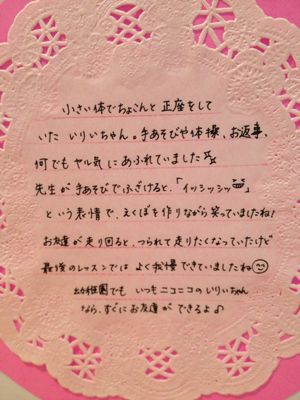 小さい体でちょこんと正座をして
いたいりいちゃん。手あそびや体操、お返事、
何でもヤル気にあふれていました
先生が手あそびでふざけると、「イッシッシッ」
という表情で、えくぼを作りながら笑っていましたね!
お友達が走り回ると、つられて走りたくなっていたけど
最後のレッスンではよく我慢できていましたね
幼稚園でもいつもニコニコのいりいちゃん
なら、すぐにお友達ができるよ♪